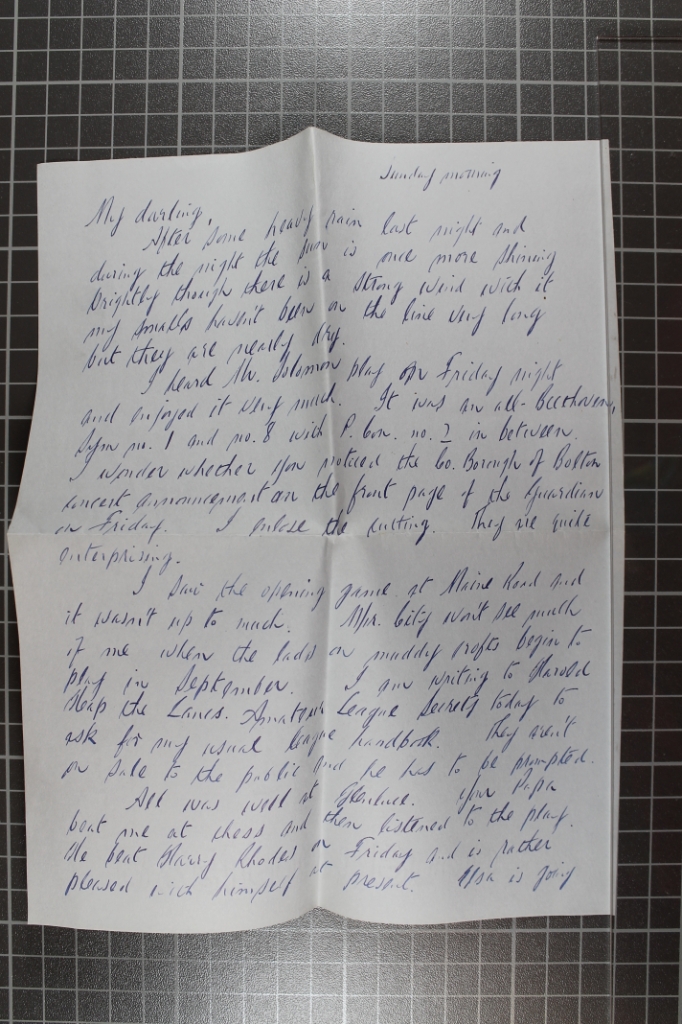 Sunday morning
My darling,
After some heavy rain last night and
during the night the sun is once more shining
brightly though there is a strong wind with it
my smalls haven't been on the line very long
but they are nearly dry.
I heard Mr. Solomon play on Friday night
and enjoyed it very much. It was an all-Beethoven,
Sym no. 1 and no. 8 with P. Con. no. 2 in between.
I wonder whether you noticed the Co. Borough of Bolton
concert announcement on the front page of the Guardian
on Friday. I enclose the cutting. They're quite
enterprising.
I saw the opening game at Maine Road and
it wasn't up to much. M/r. City won't see much
of me when the lads on muddy crofts begin to
play in September. I am writing to Harold
Heap the Lancs. Amateur League Secrety today to
ask for my usual league handbook. They aren't
on sale to the public and he has to be prompted.
All was well at Glenluce. Your Papa
beat me at chess and then listened to the play.
He beat Harry Rhodes on Friday and is rather
pleased with himself at present. Elsa is going